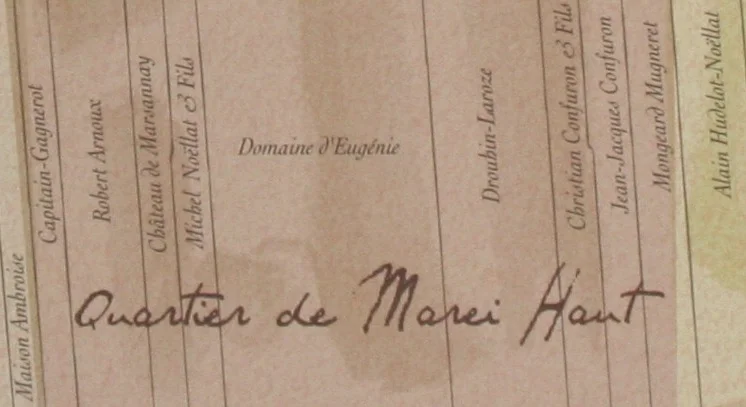 Maison Ambroise
Capitain-Gagnerot
Robert Arnoux
Château de Marsannay
Michel Noëllat & Fils
Domaine d'Eugénie
Drouhin-Laroze
Christian Confuron & Fils
Jean-Jacques Confuron
Mongeard Mugneret
Alain Hudelot-Noëllat
Quartier de Marei Haut